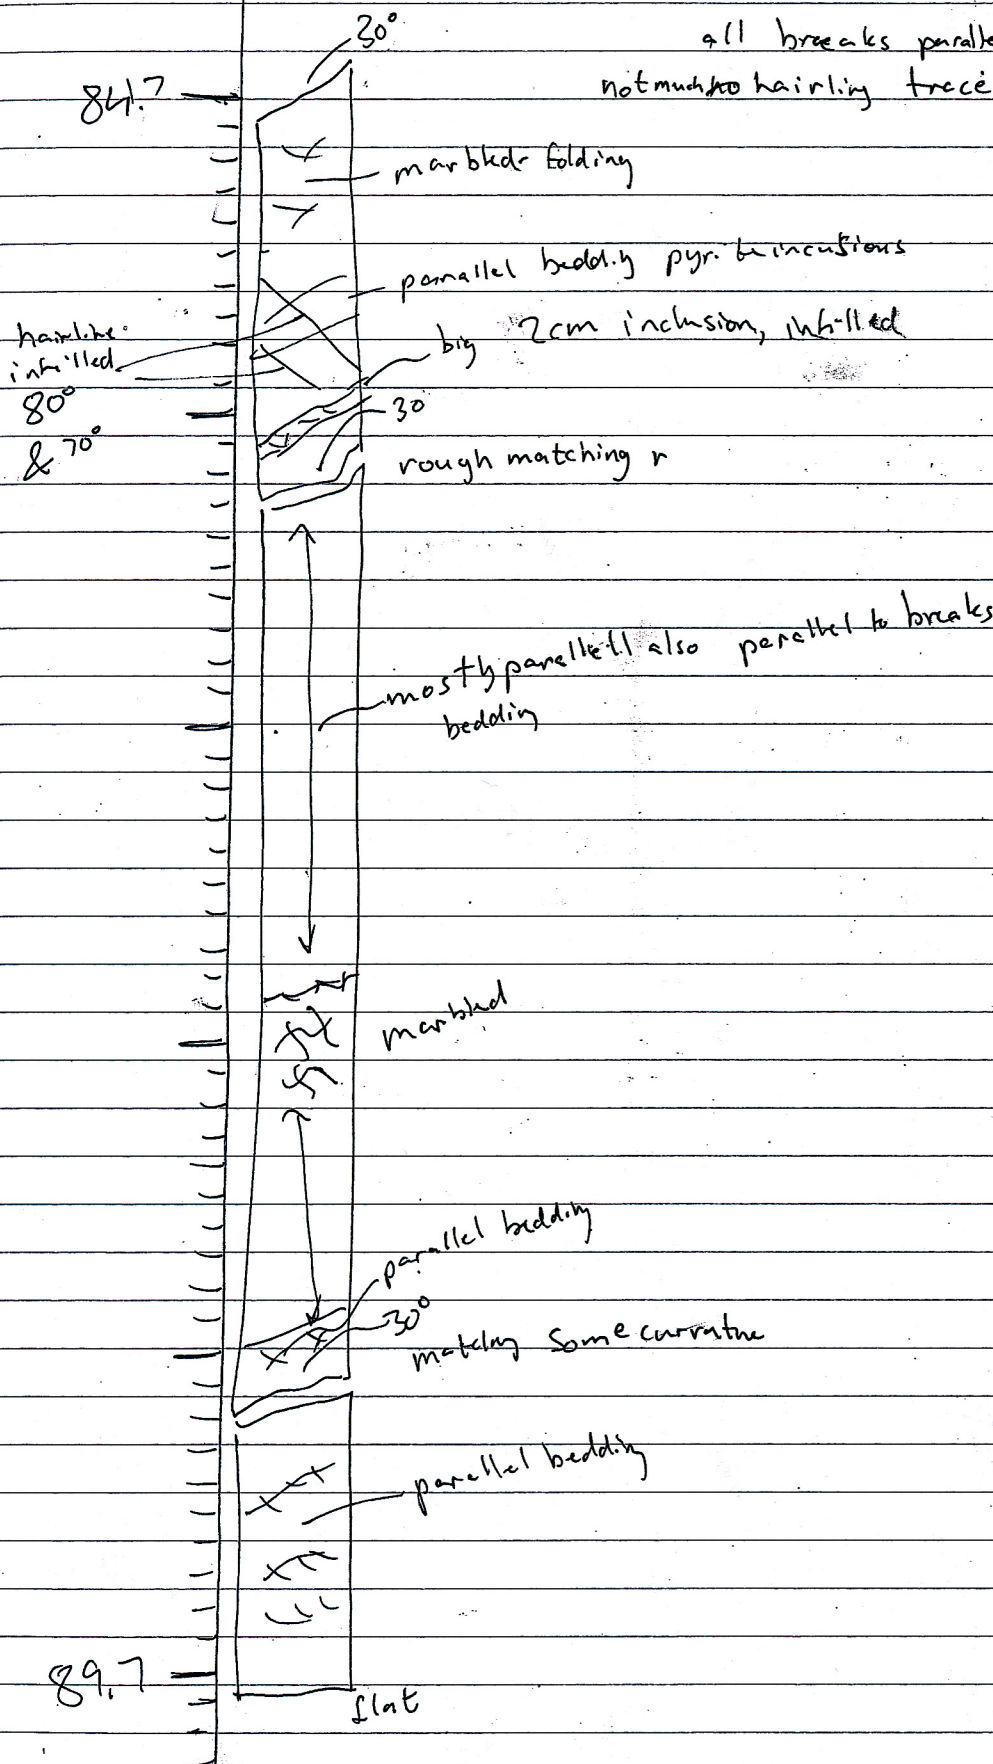 30°
all breaks paralle
not much no hairling trace
84.7
marbled folding
parallel bedding pyrite incusions
hairline
infilled
big 2cm inclusion, infilled
80°
30
& 70°
rough matching r
mostly parallell also parallel to breaks
bedding
marbled
parallel bedding
30°
some curvature
parallel bedding
89.7
flat